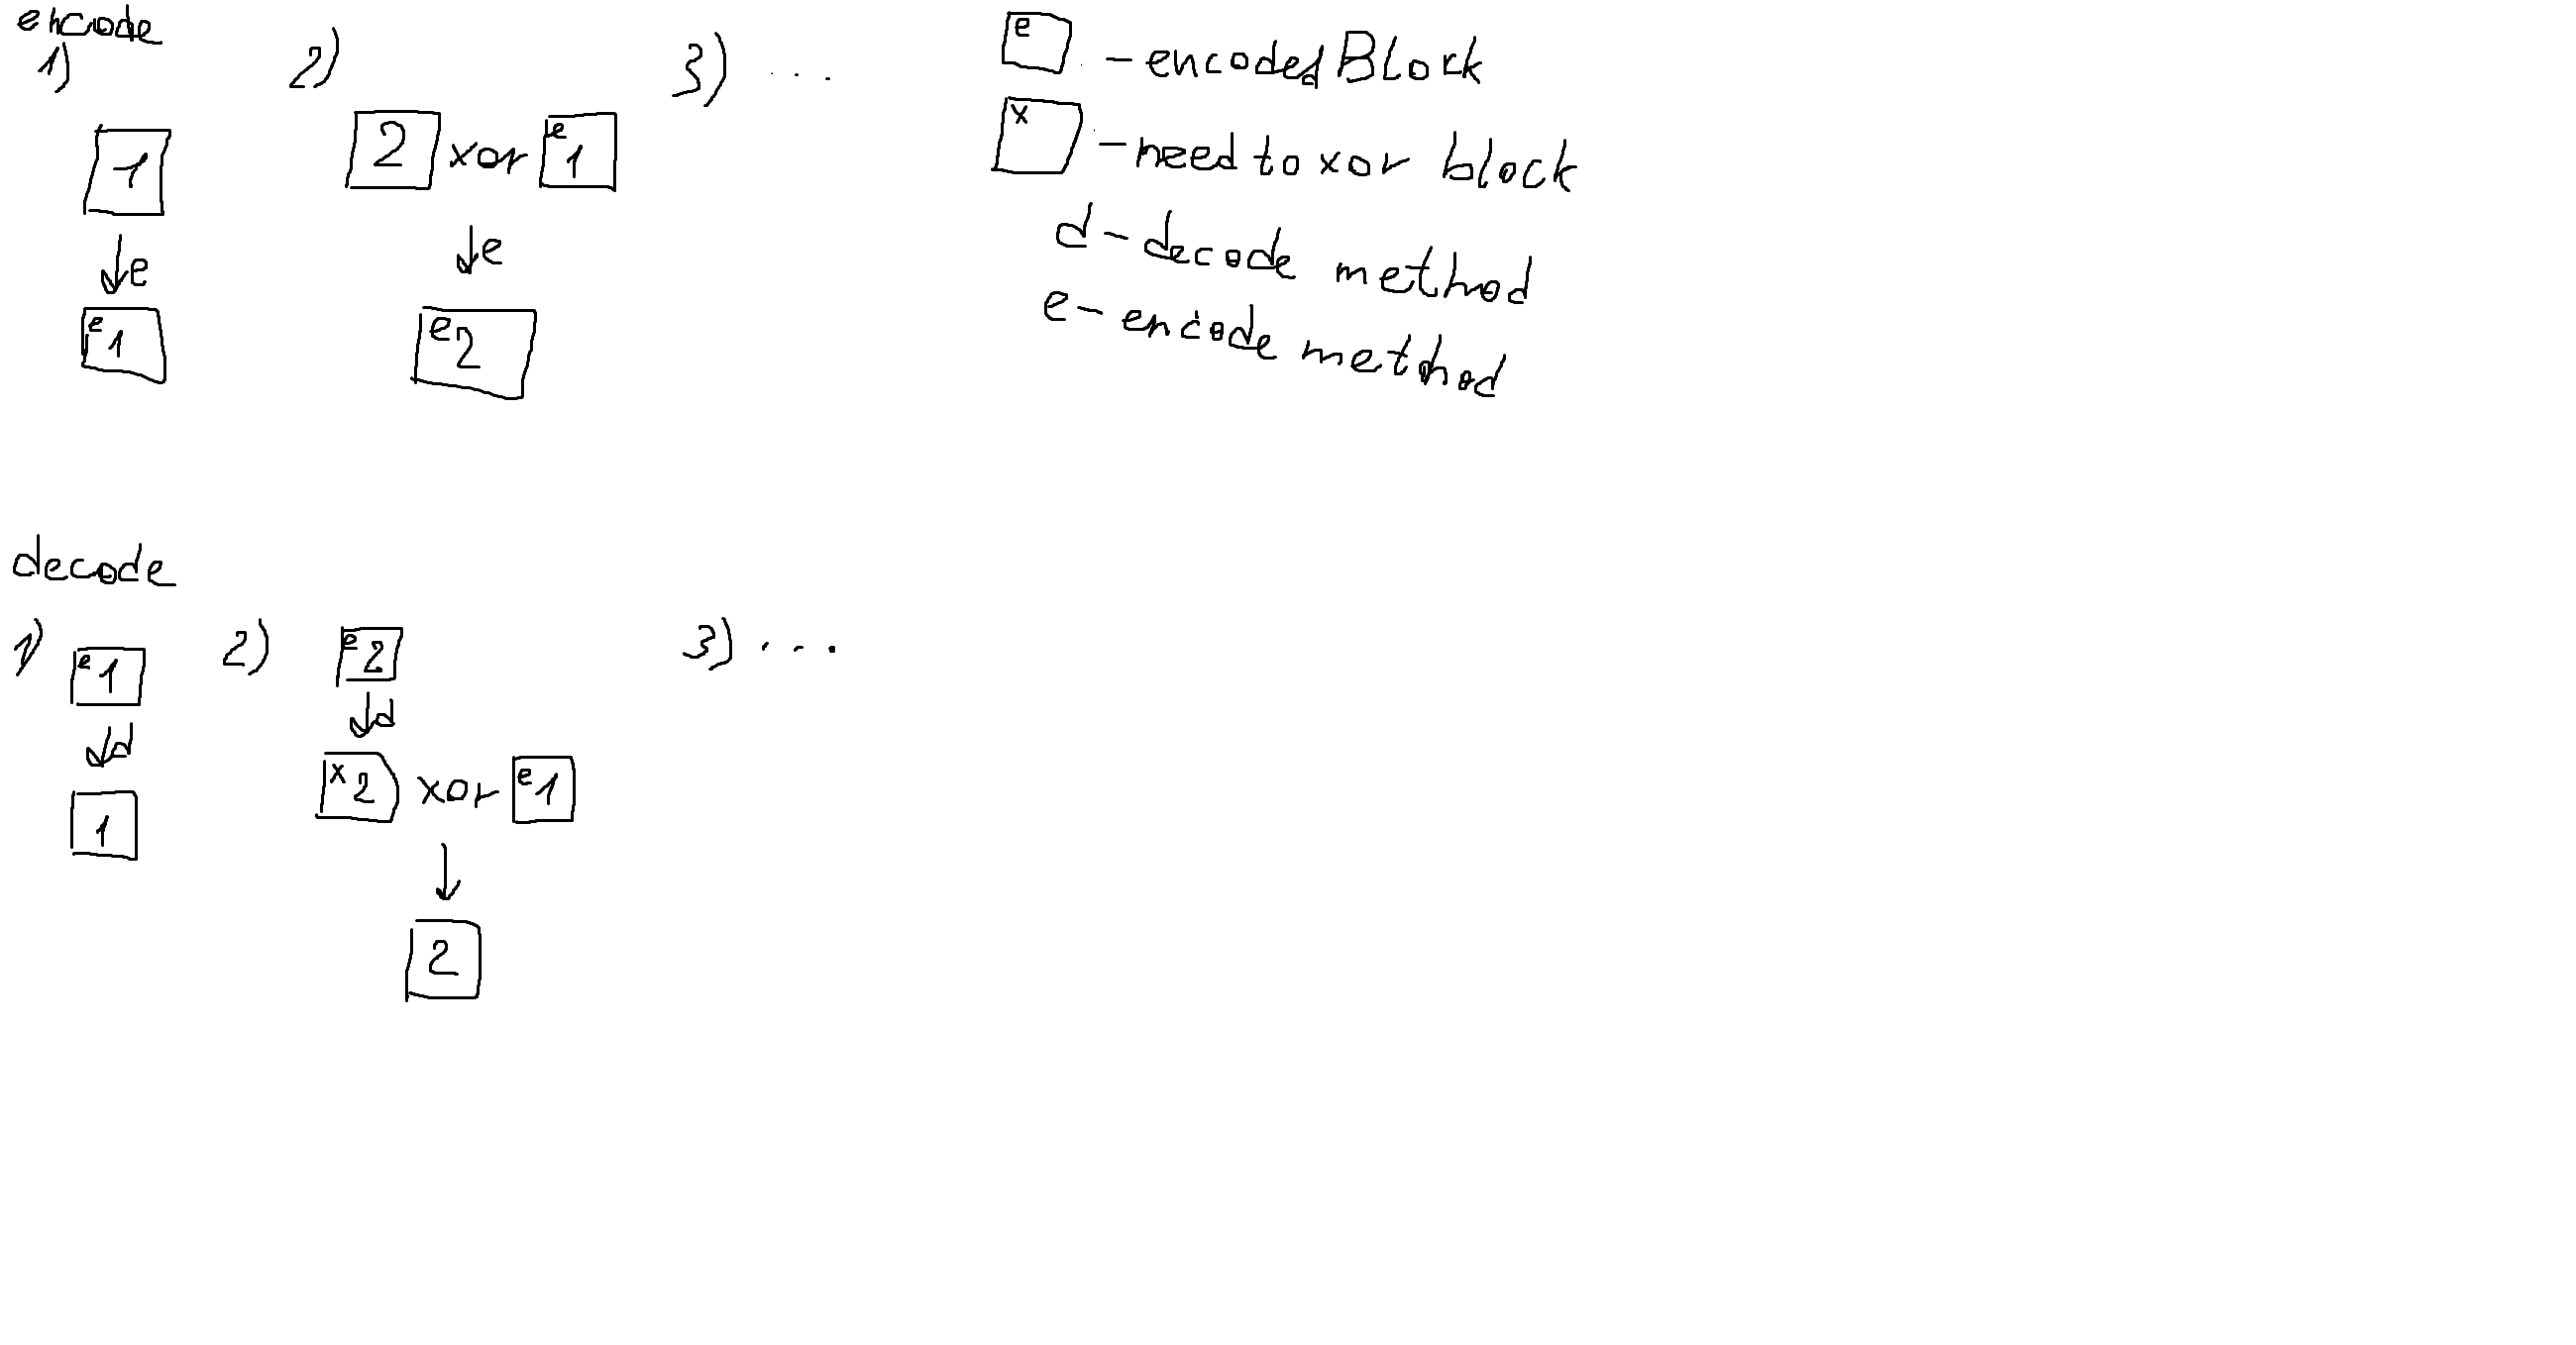 encode
1) 2) 3) ...
1
↓e
e 1
2 xor e 1
↓e
e 2
e - encoded Block
x - need to xor block
d - decode method
e - encode method
decode
1) 2) 3) ...
e 1
↓d
1
e 2
↓d
x 2 xor e 1
↓
2